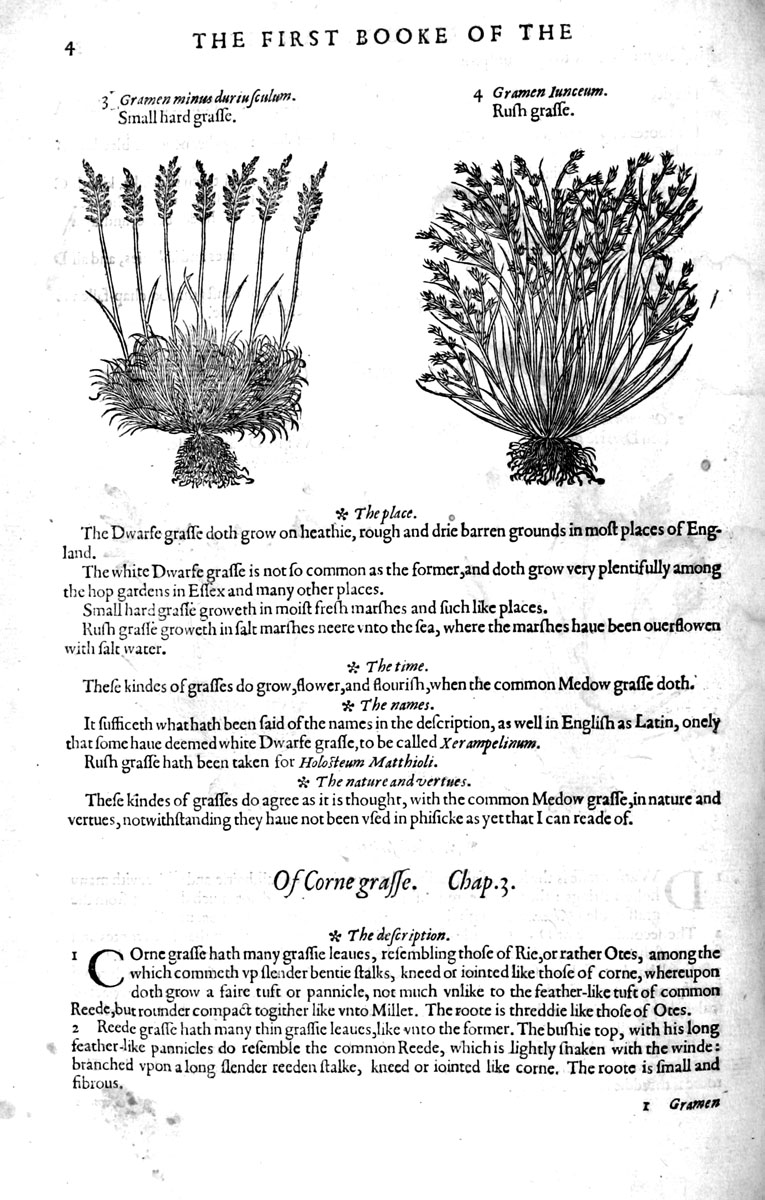 4
THE FIRST BOOKE OF THE
3 Gramen minus duriuſculum.
Small hard graſſe.
4 Gramen Iunceum.
Ruſh graſſe.
✻ The place.
The Dwarfe graſſe doth grow on heathie, rough and drie barren grounds in moſt places of Eng-
land.
The white Dwarfe graſſe is not ſo common as the former,and doth grow very plentifully among
the hop gardens in Eſſex and many other places.
Small hard graſſe groweth in moiſt freſh marſhes and ſuch like places.
Ruſh graſſe groweth in ſalt marſhes neere vnto the ſea, where the marſhes haue been ouerflowen
with ſalt water.
✻ The time.
Theſe kindes of graſſes do grow,flower,and flouriſh,when the common Medow graſſe doth.
✻ The names.
It ſufficeth what hath been ſaid of the names in the deſcription, as well in Engliſh as Latin, onely
that ſome haue deemed white Dwarfe graſſe,to be called Xerampelinum.
Ruſh graſſe hath been taken for Holoſteum Matthioli.
✻ The nature and vertues.
Theſe kindes of graſſes do agree as it is thought, with the common Medow graſſe,in nature and
vertues, notwithſtanding they haue not been vſed in phiſicke as yet that I can reade of.
Of Corne graſſe. Chap.3.
✻ The deſcription.
1 COrne graſſe hath many graſſie leaues, reſembling thoſe of Rie,or rather Otes, among the
which commeth vp ſlender bentie ſtalks, kneed or iointed like thoſe of corne, whereupon
doth grow a faire tuft or pannicle, not much vnlike to the feather-like tuft of common
Reede,but rounder compact togither like vnto Millet. The roote is threddie like thoſe of Otes.
2 Reede graſſe hath many thin graſſie leaues,like vnto the former. The buſhie top, with his long
feather-like pannicles do reſemble the common Reede, which is lightly ſhaken with the winde:
branched vpon a long ſlender reeden ſtalke, kneed or iointed like corne. The roote is ſmall and
fibrous.
1 Gramen